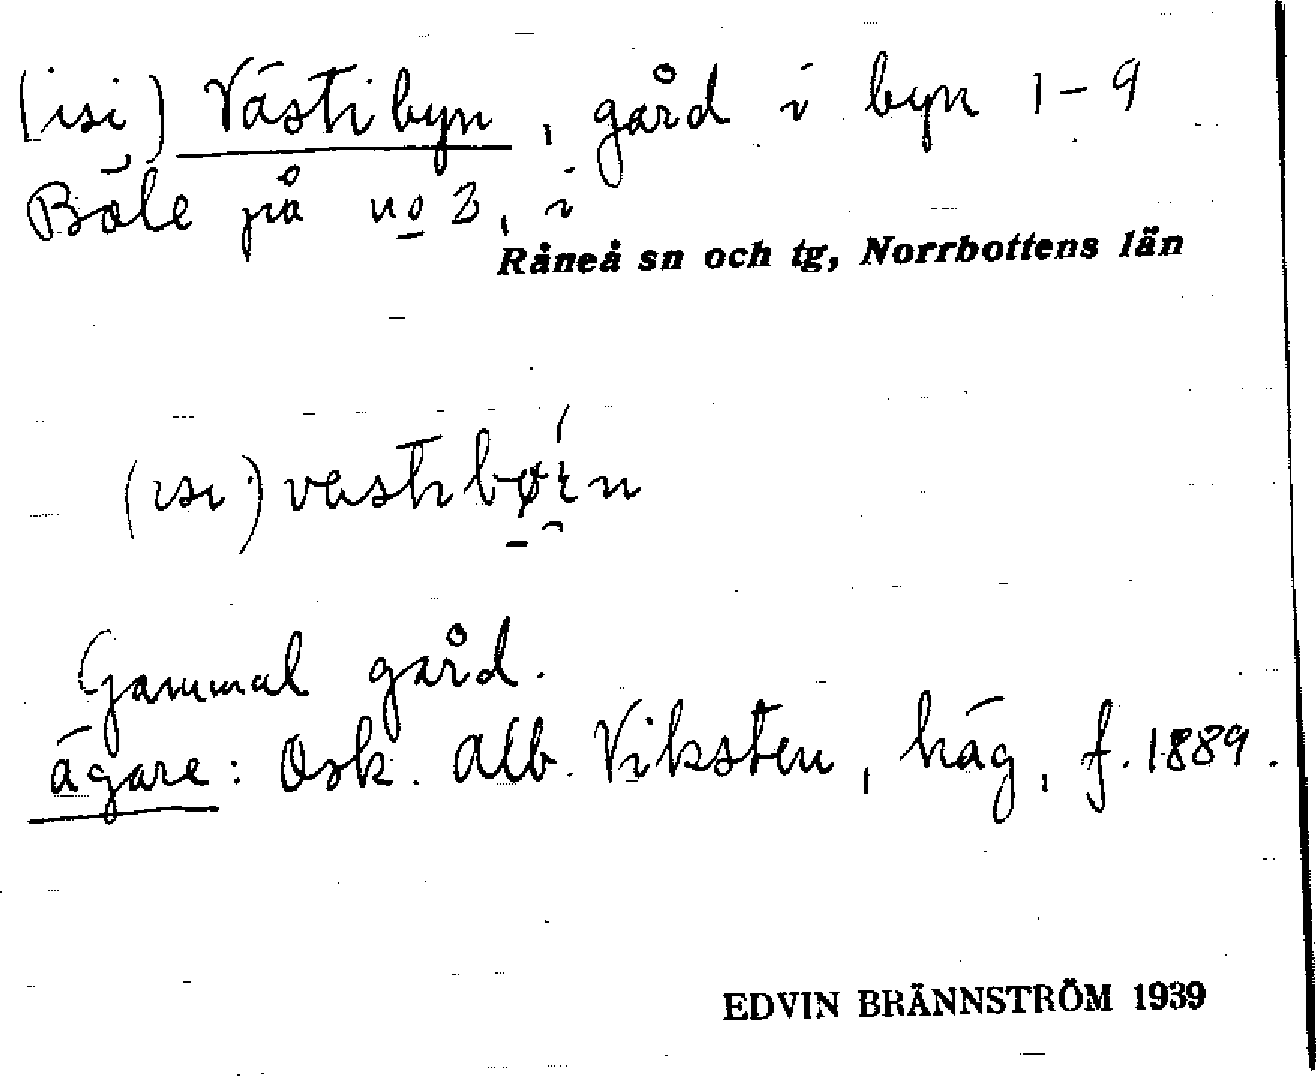 (isi) Västibyn, gård i byn 1-9
Böle på no 3, i
Råneå sn och tg, Norrbottens län
(ısı) vɑstıbøi̯n
Gammal gård.
ägare: Osk. Alb. Viksten, häg, f. 1889.
EDVIN BRÄNNSTRÖM 1939